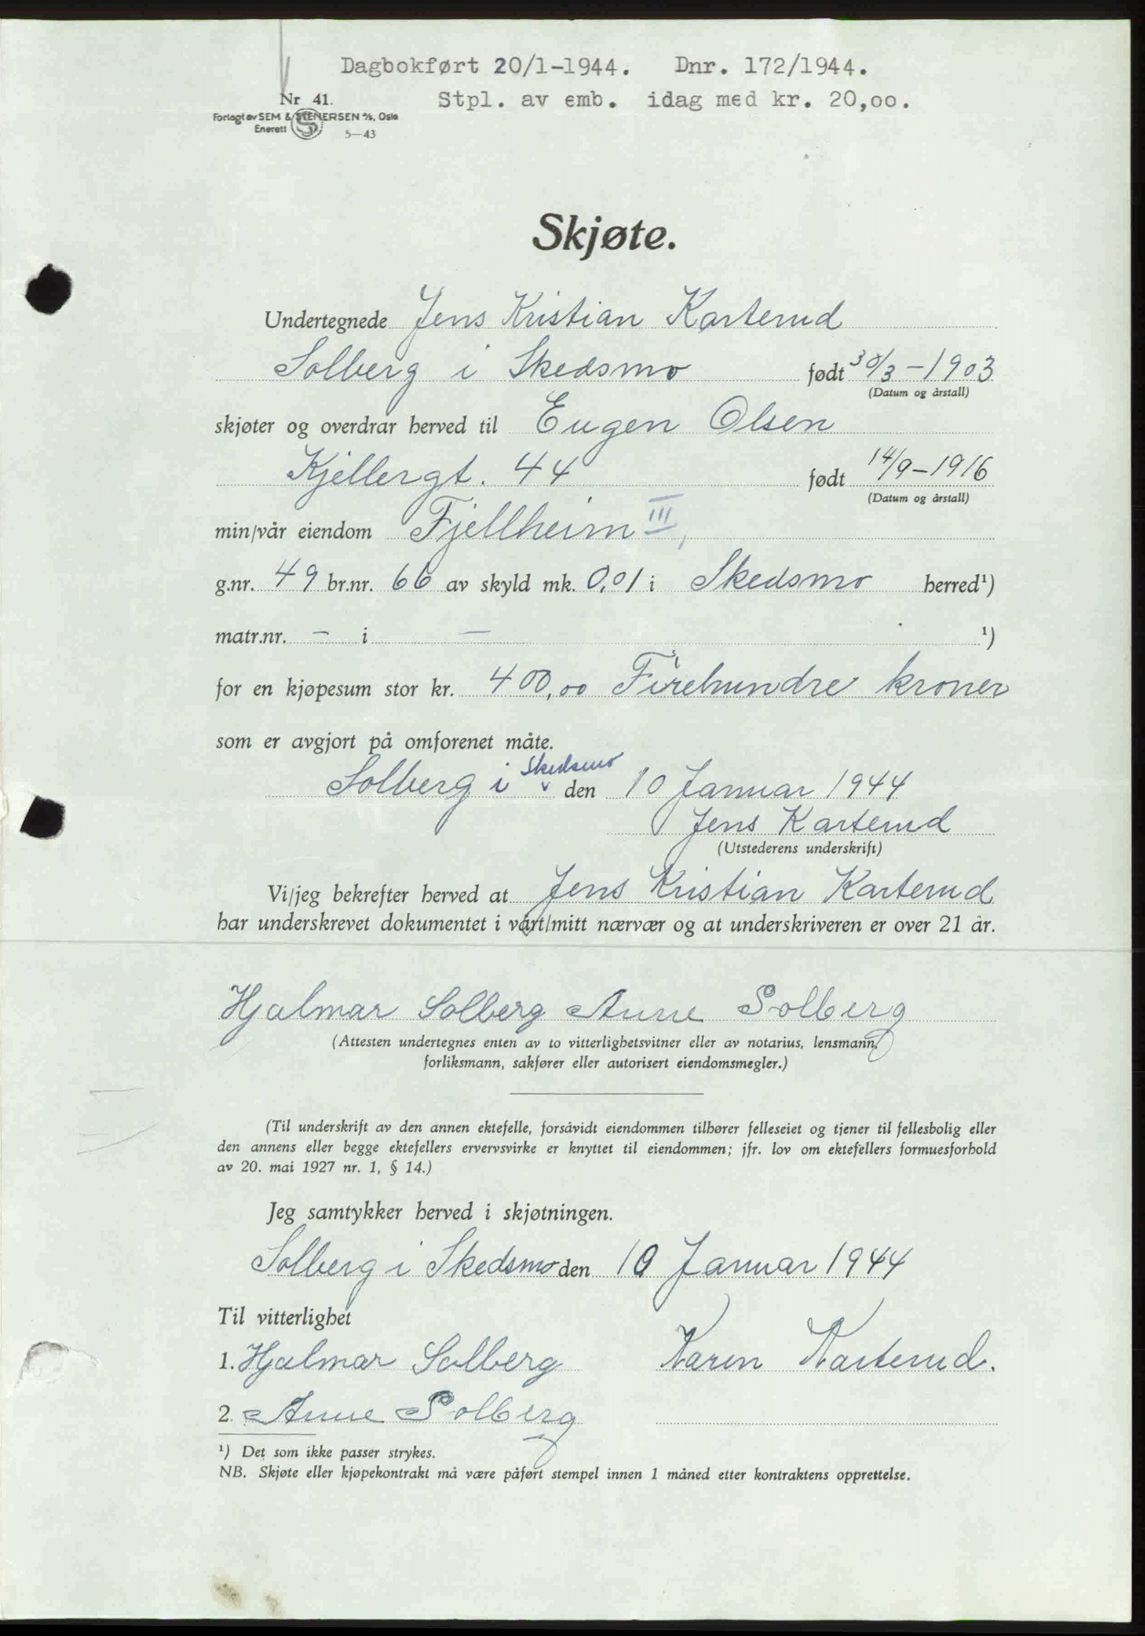 Dagbokført 20/1-1944. Dnr. 172/1944.
Stpl. av emb. idag med kr. 20,oo.
Nr 41.
Forlagt av SEM & STENERSEN A/S, Oslo
Enerett
5—43
Skjøte.
Undertegnede Jens Kristian Karterud
Solberg i Skedsmo født 30/3-1903
(Datum og årstall)
skjøter og overdrar herved til Eugen Olsen
Kjellergt. 44 født 14/9-1916
(Datum og årstall)
min/vår eiendom Fjellheim III,
g.nr. 49 br.nr. 66 av skyld mk. 0,01 i Skedsmo herred¹)
matr.nr. – i – ¹)
for en kjøpesum stor kr. 400,00 Firehundre kroner
som er avgjort på omforenet måte.
Solberg i Skedsmo den 10 Januar 1944
Jens Karterud
(Utstederens underskrift)
Vi/jeg bekrefter herved at Jens Kristian Karterud
har underskrevet dokumentet i vårt/mitt nærvær og at underskriveren er over 21 år.
Hjalmar Solberg Anne Solberg
(Attesten undertegnes enten av to vitterlighetsvitner eller av notarius, lensmann,
forliksmann, sakfører eller autorisert eiendomsmegler.)
(Til underskrift av den annen ektefelle, forsåvidt eiendommen tilhører felleseiet og tjener til fellesbolig eller
den annens eller begge ektefellers ervervsvirke er knyttet til eiendommen; jfr. lov om ektefellers formuesforhold
av 20. mai 1927 nr. 1, § 14.)
Jeg samtykker herved i skjøtningen.
Solberg i Skedsmo den 10 Januar 1944
Til vitterlighet
1. Hjalmar Solberg Karen Karterud.
2. Anne Solberg
¹) Det som ikke passer strykes.
NB. Skjøte eller kjøpekontrakt må være påført stempel innen 1 måned etter kontraktens opprettelse.